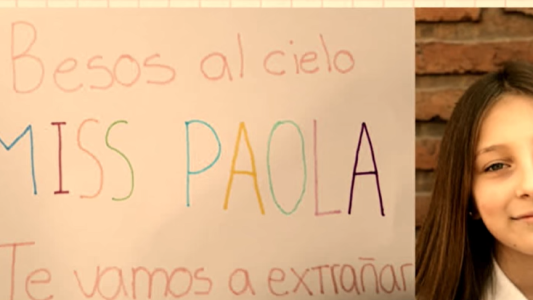 Besos al cielo
MISS PAOLA
Te vamos a extrañar